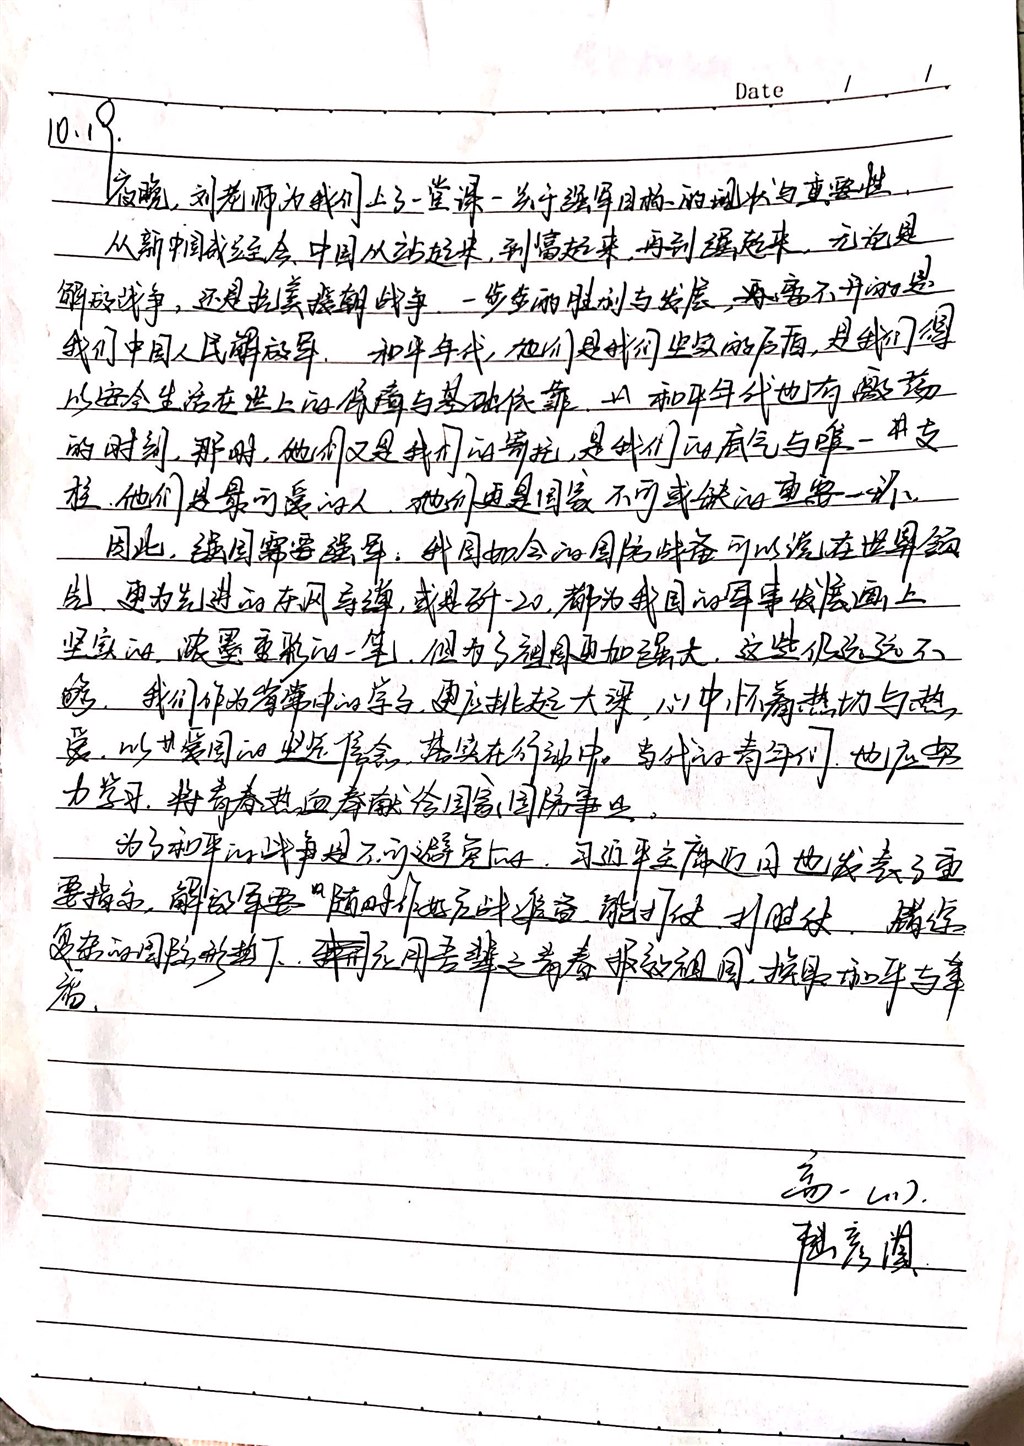 Date / /
10.19.
夜晚,刘老师为我们上了一堂课-关于强军目标的现状与重要性.
从新中国成立至今,中国从站起来,到富起来,再到强起来,无论是
解放战争,还是抗美援朝战争,一步步的胜利与发展,离不开的是
我们中国人民解放军.和平年代,他们是我们坚实的后盾,是我们得
以安全生活在世上的保障与基础依靠.和平年代也有震荡
的时刻,那时,他们又是我们的寄托,是我们的底气与唯一支
柱.他们是最可爱的人.他们更是国家不可或缺的重要一环.
因此,强国需要强军.我国如今的国防战备可以说在世界领
先.更为先进的东风导弹,或是歼-20,都为我国的军事发展画上
坚实的,浓墨重彩的一笔.但为了祖国更加强大,这些仍远远不
够.我们作为省常中的学子,更应挑起大梁,心中怀着热切与热
爱,以爱国的坚定信念,落实在行动中。当代的青年们,也应努
力学习,将青春热血奉献给国家国防事业.
为了和平的战争是不可避免的.习近平主席近日也发表了重
要指示,解放军要“随时作好应战准备,能打仗,打胜仗.错综
复杂的国际形势下,应用吾辈之青春报效祖国,换取和平与幸
福.
高一(11).
陆彦